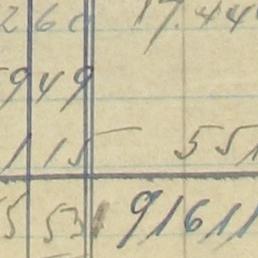 260 17.44
949
115 551
55 53 91611